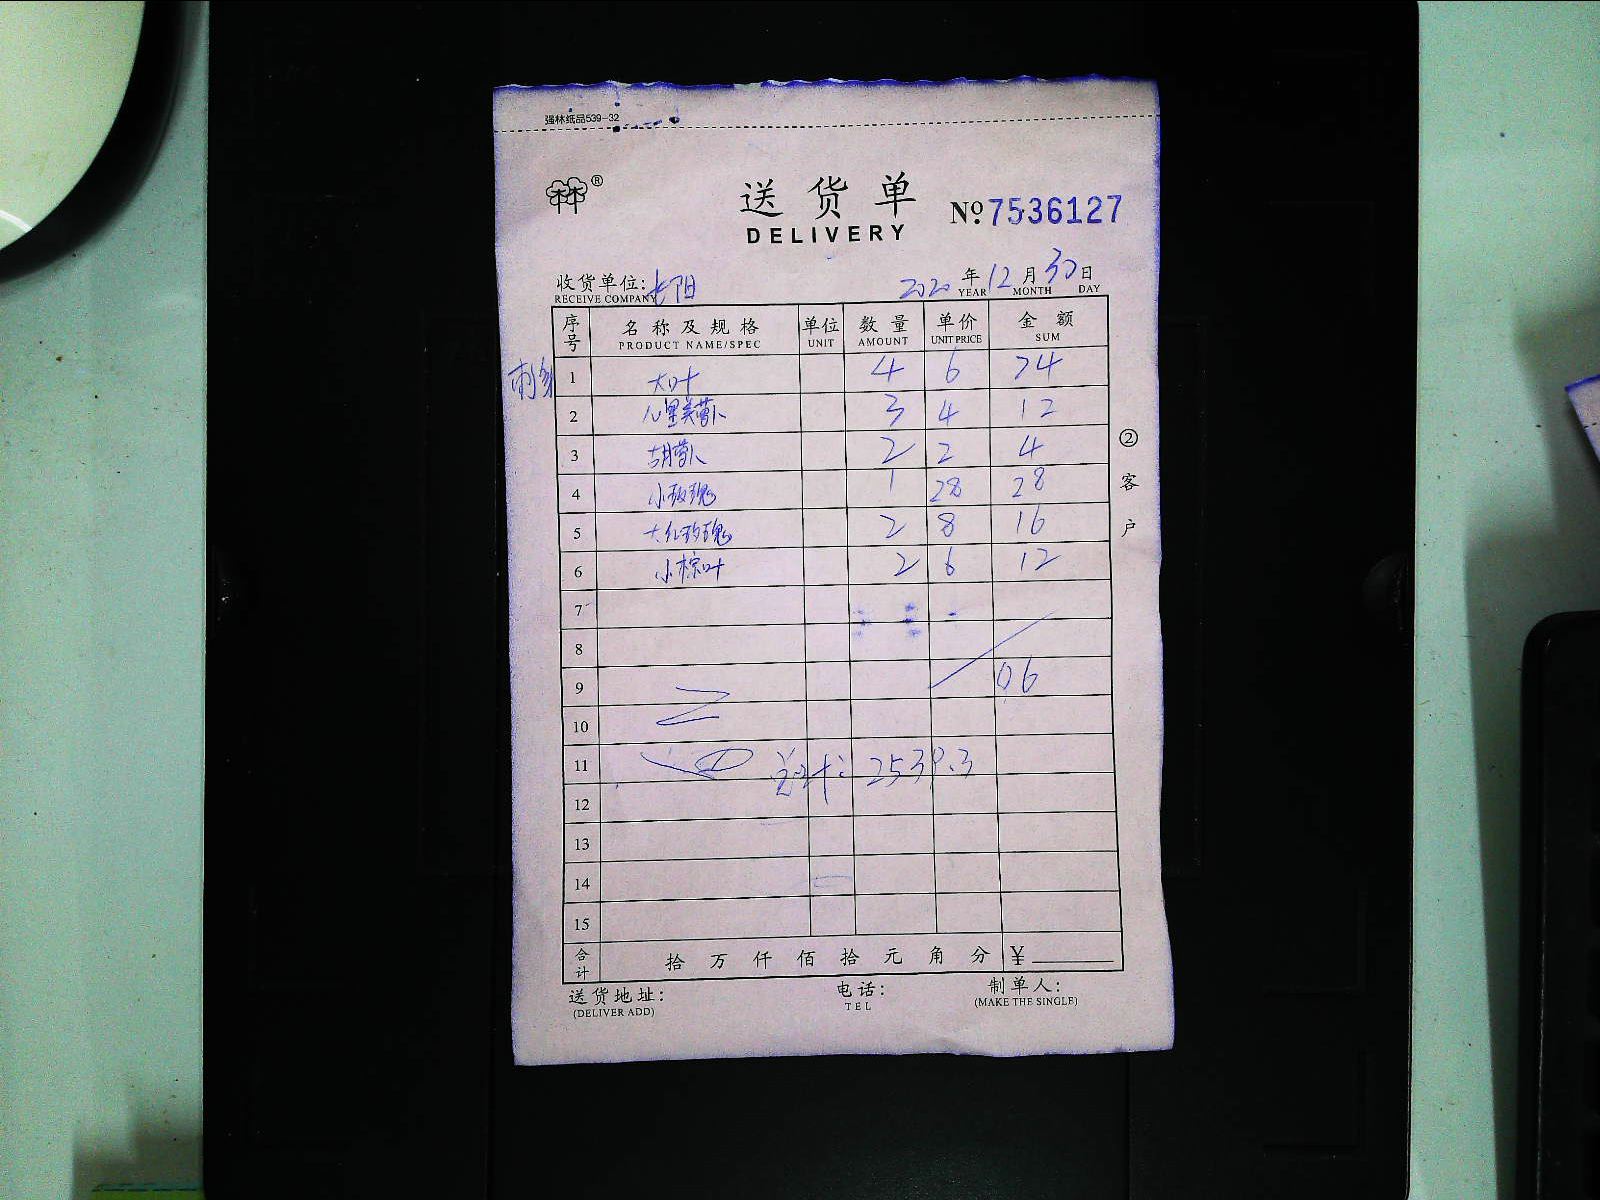 强林纸品539-32
林®
送货单 №7536127
DELIVERY
收货单位: 长阳 2020年12月30日
RECEIVE COMPANY YEAR MONTH DAY
序号 名称及规格 单位 数量 单价 金额
PRODUCT NAME/SPEC UNIT AMOUNT UNIT PRICE SUM
刺身 1 大叶 4 6 24
2 心里美萝卜 3 4 12
3 胡萝卜 2 2 4
4 小玫瑰 1 28 28
5 大红玫瑰 2 8 16
6 小棕叶 2 6 12
7
8
9
10
11 总计: 2539.3
12
13
14
15
合计 拾 万 仟 佰 拾 元 角 分 ¥
送货地址: 电话: 制单人:
(DELIVER ADD) TEL (MAKE THE SINGLE)
②客户